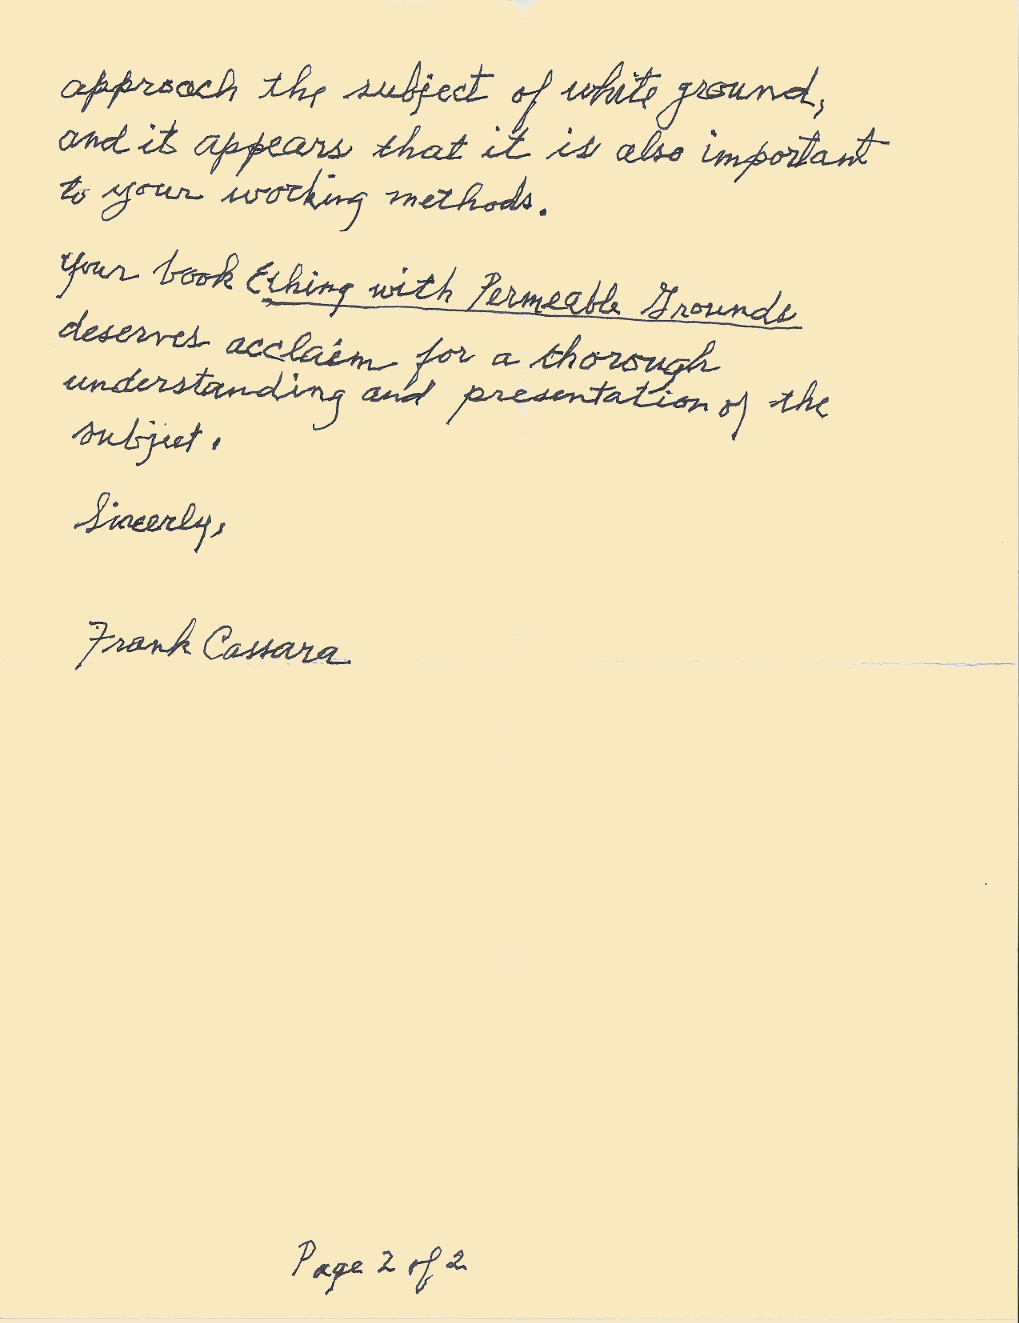 approach the subject of white ground,
and it appears that it is also important
to your working methods.
Your book Etching with Permeable Grounds
deserves acclaim for a thorough
understanding and presentation of the
subject.
Sincerly,
Frank Cassara
Page 2 of 2